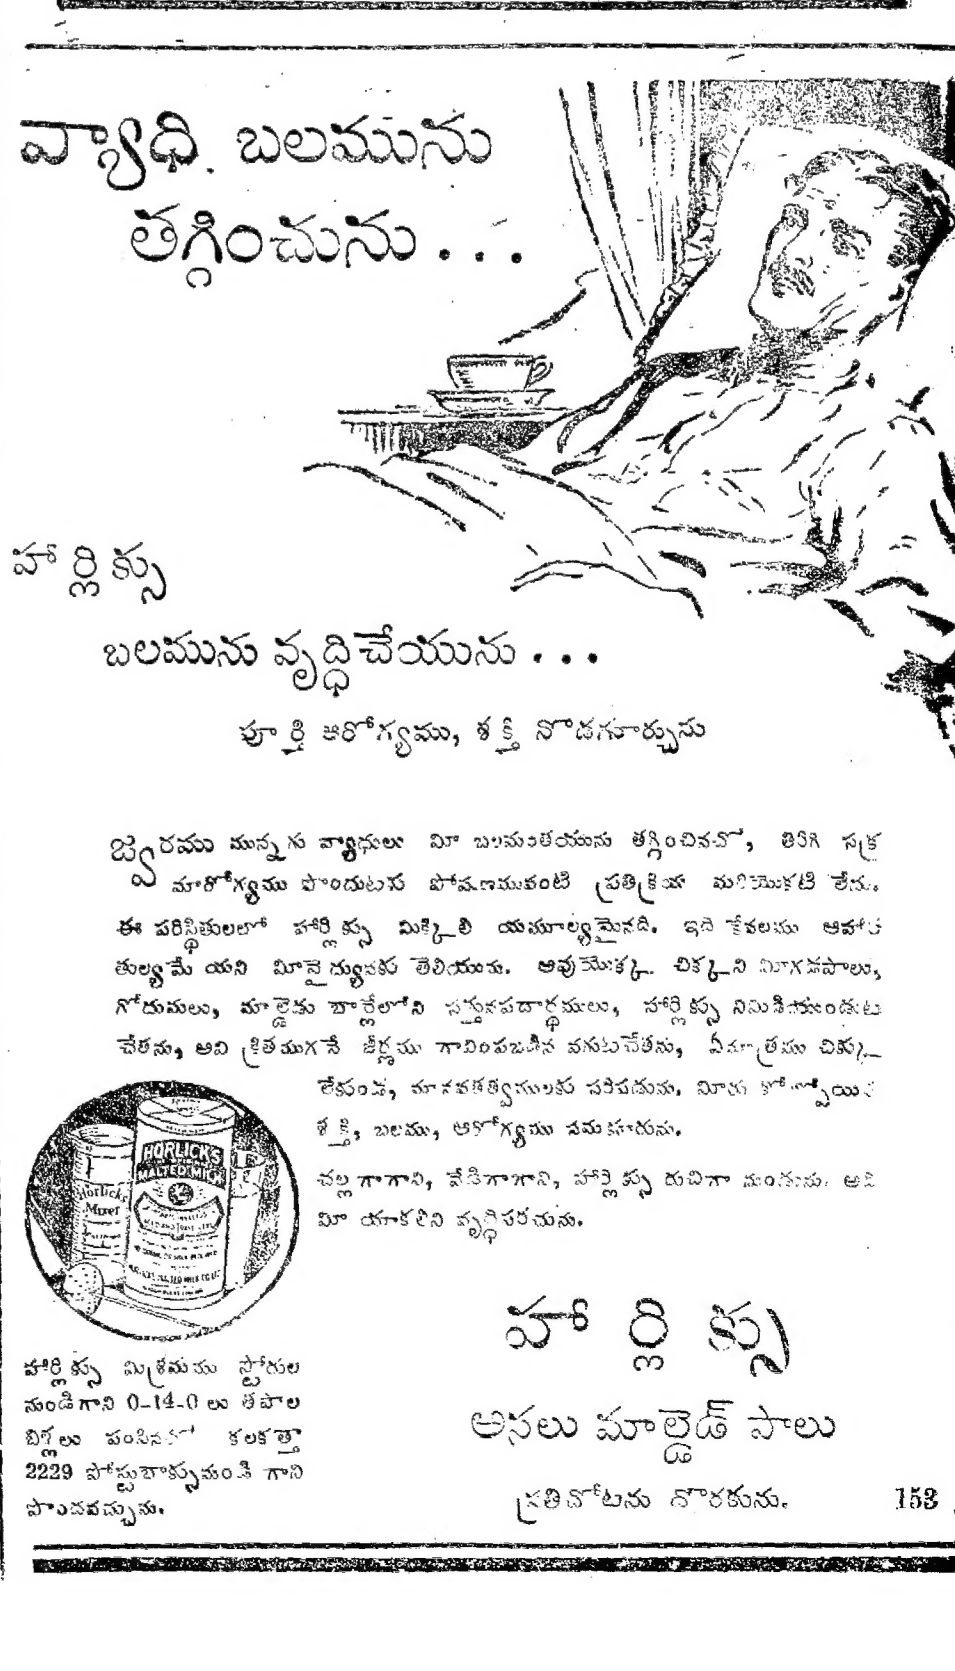 వ్యాధి బలమును
తగ్గించును...
హార్లిక్సు
బలమును వృద్ధిచేయును...
పూర్తి ఆరోగ్యము, శక్తి నొడగూర్చును
జ్వరము మున్నగు వ్యాధులు మీ బలమంతయును తగ్గించినచో, తిరిగి సక్ర
మారోగ్యము పొందుటకు పోషణమువంటి ప్రతిక్రియ మరియొకటి లేదు.
ఈ పరిస్థితులలో హార్లిక్సు మిక్కిలి యమూల్యమైనది. ఇది కేవలము ఆహార
తుల్యమే యని మీవైద్యునకు తెలియును. ఆవుయొక్క చిక్కని మీగడపాలు,
గోదుమలు, మాల్టెడు బార్లేలోని పదార్థములు, హార్లిక్సు
చేతను, అవి జీర్ణము గావింపబడిన వగుటచేతను, ఏమాత్రము చిక్కు
లేకుండ, సరిపడును. మీరు కోల్పోయిన
శక్తి, బలము, ఆరోగ్యము సమకూరును.
చల్లగాగాని, వేడిగాగాని, హార్లిక్సు రుచిగా నుండును. అది
మీ యాకలిని వృద్ధిపరచును.
HORLICK'S
MALTED MILK
Horlicks
Mixer
హార్లిక్సు మిశ్రమము స్టోరుల
నుండిగాని 0-14-0 లు తపాల
బిళ్లలు పంపినచో కలకత్తా
2229 పోస్టుబాక్సునుండి గాని
పొందవచ్చును.
హార్లిక్సు
అసలు మాల్టెడ్ పాలు
ప్రతిచోటను దొరకును.
153